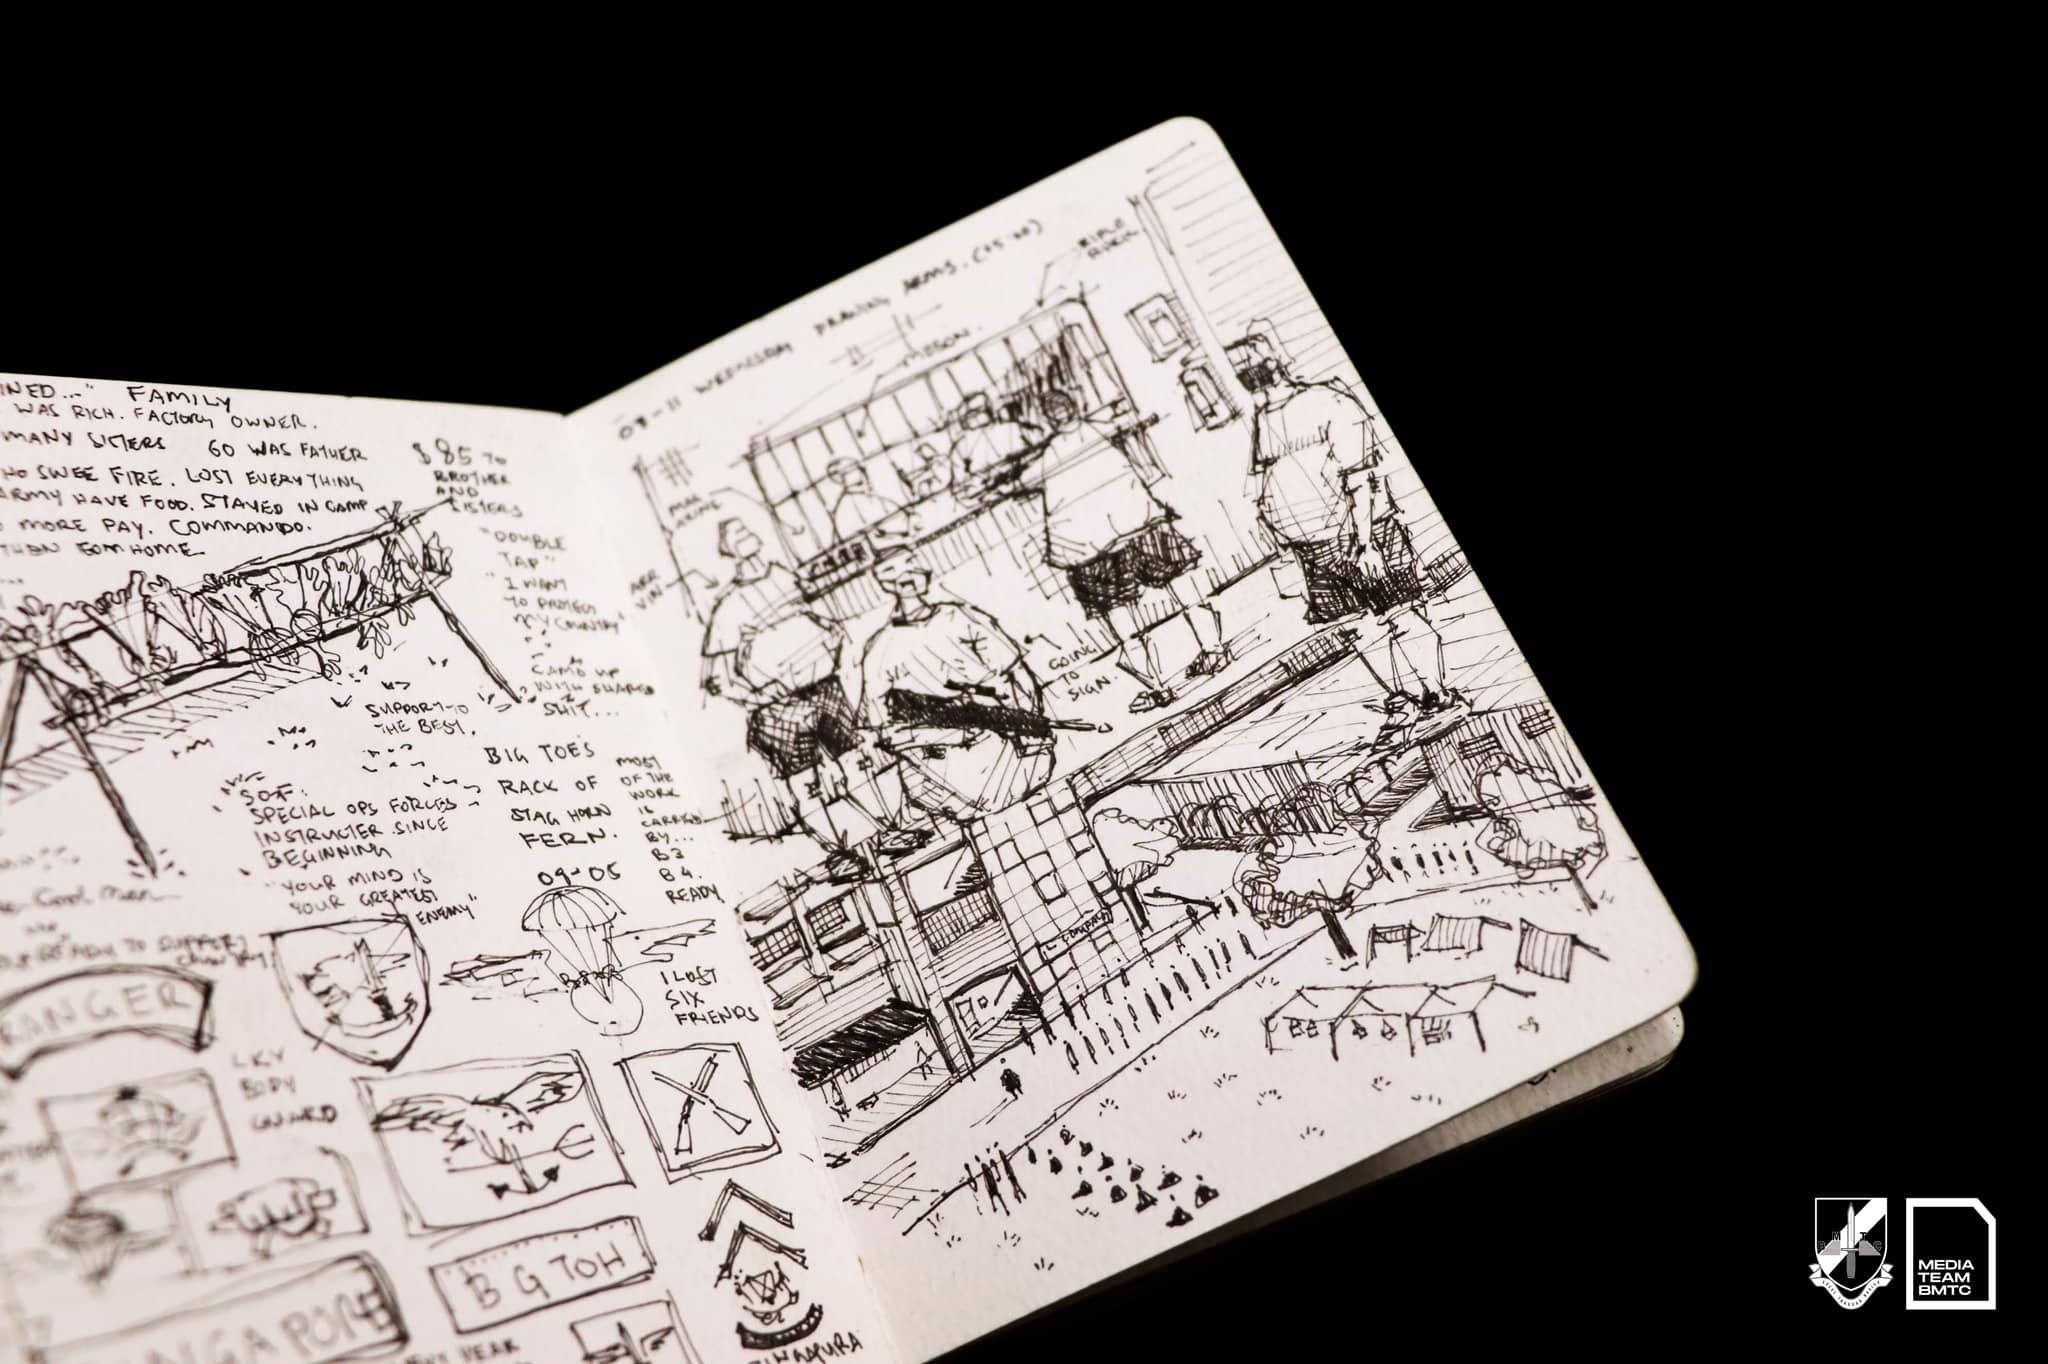 INED..." FAMILY
WAS RICH. FACTORY OWNER.
MANY SISTERS GO WAS FATHER
HO SWEE FIRE. LOST EVERYTHING
ARMY HAVE FOOD. STAYED IN CAMP
MORE PAY. COMMANDO.
THEN GOM HOME
$85 TO
BROTHER
AND
SISTERS
"DOUBLE
TAP"
"I WANT
TO PROTECT
MY COUNTRY"
CAME UP
WITH
SHIT...
SUPPORT TO
THE BEST.
SOF:
SPECIAL OPS FORCES
INSTRUCTER SINCE
BEGINNING
"YOUR MIND IS
YOUR GREATEST
ENEMY"
BIG TOES
RACK OF
STAG HORN
FERN.
09-05
MOST
OF THE
WORK
IS
CARRIED
BY...
B3
B4.
READY
TO SUPPORT
COUNTRY
RANGER
I LOST
SIX
FRIENDS
LKY
BODY
GUARD
BG TOH
SINGAPORE
YEAR
SINGAPURA
09-11 WEDNESDAY DRAWING ARMS.
RIFLE
RACK
GOING
TO
SIGN.
COMPANY
BMTC
MEDIA
TEAM
BMTC